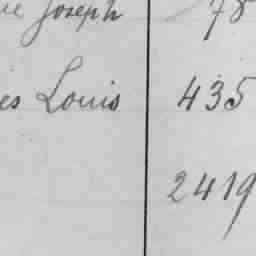 Joseph 78
Louis 435
2419